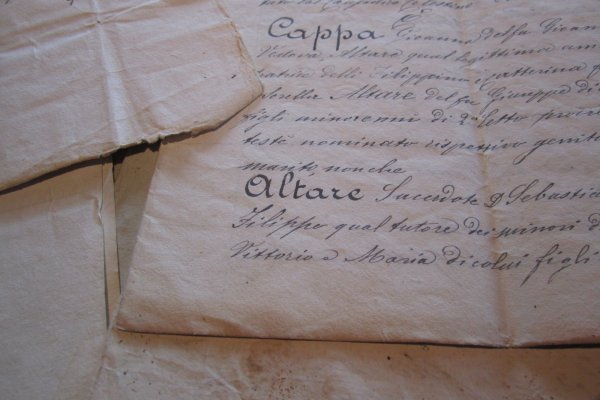 Cappa Gioanna del fu Gioan
Vedova Altare qual legittima am
delli Filippina e Catterina
Altare del fu Giuseppe di
figli minorenni di 2º letto
testè nominato rispettivo genito
marito, nonchè
Altare Sacerdote D. Sebastia
Filippo qual tutore dei minori d
Vittorio e Maria di colui figli